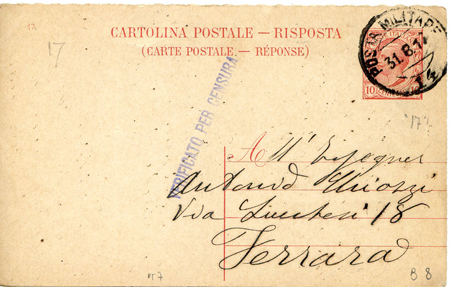 17
CARTOLINA POSTALE — RISPOSTA
(CARTE POSTALE. — RÉPONSE)
POSTA MILITARE
31.8.17
10
VERIFICATO PER CENSURA
All'
Antonio
Via 18
Ferrara
B 8